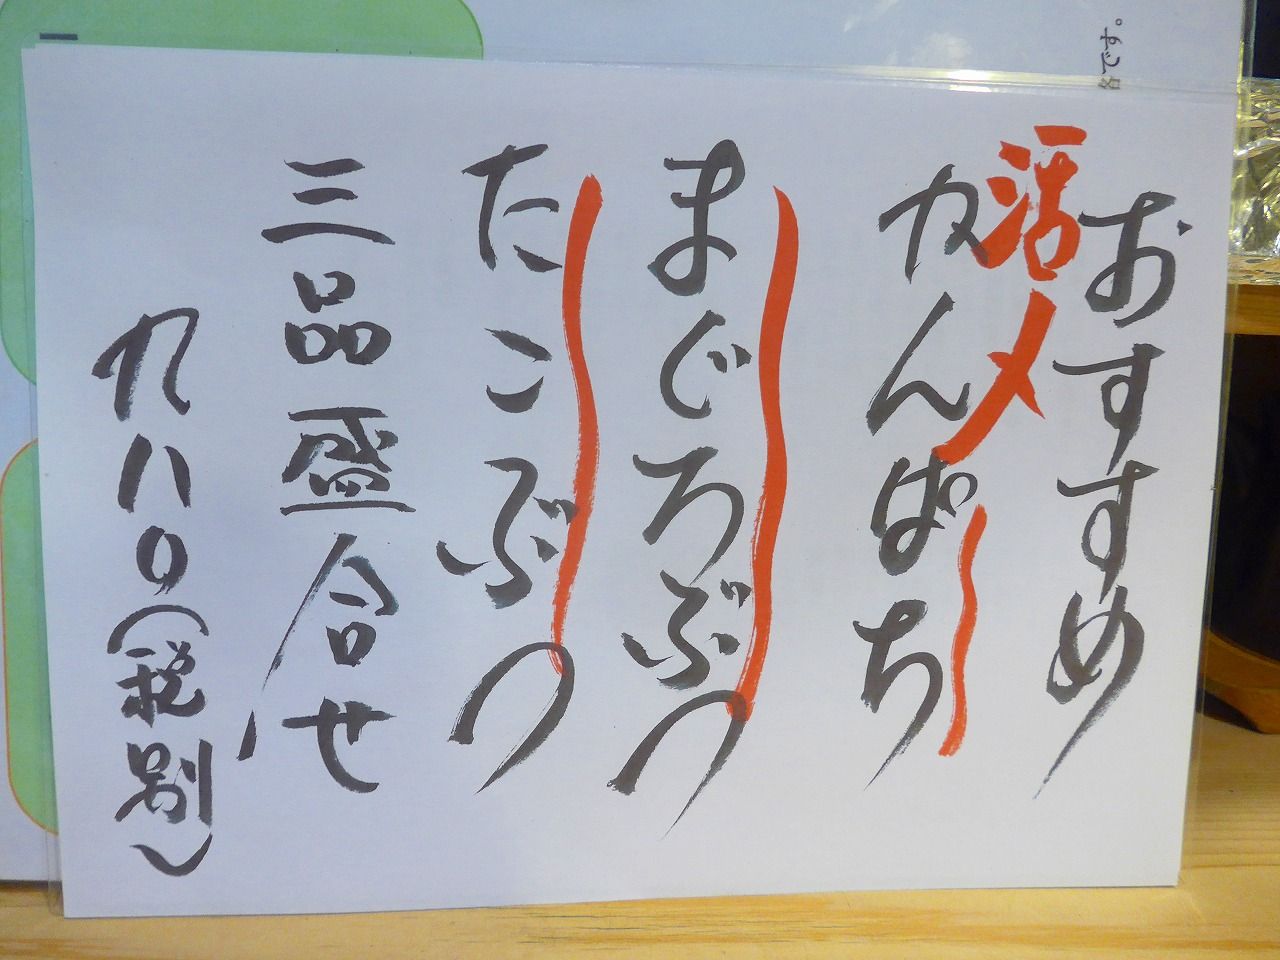 おすすめ
活〆
かんぱち
まぐろぶつ
たこぶつ
三品盛合せ
九八〇(税別)
です。